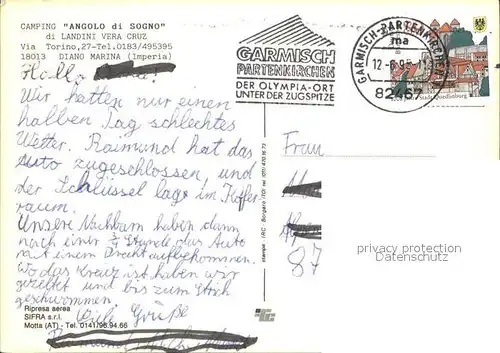 CAMPING "ANGOLO di SOGNO"
di LANDINI VERA CRUZ
Via Torino,27-Tel.0183/495395
18013 DIANO MARINA (Imperia)
Hallo
Wir hatten nur einen
halben Tag schlechtes
Wetter. Raimund hat das
Auto zugeschlossen, und
der Schlüssel lag im Koffer
raum.
Unsere Nachbarn haben dann
nach einer 3/4 Stunde das Auto
mit einem Draht aufbekommen.
Wo das Kreuz ist haben wir
gezeltet und bis zum Strich
geschwommen.
Viele Grüße
Ripresa aerea
SIFRA s.r.l.
Motta (AT) - Tel. 0141/96.94.66
GARMISCH
PARTENKIRCHEN
DER OLYMPIA-ORT
UNTER DER ZUGSPITZE
GARMISCH-PARTENKIRCHEN
ma
82467
Quedlinburg
Frau
87
privacy protection
VEREMART